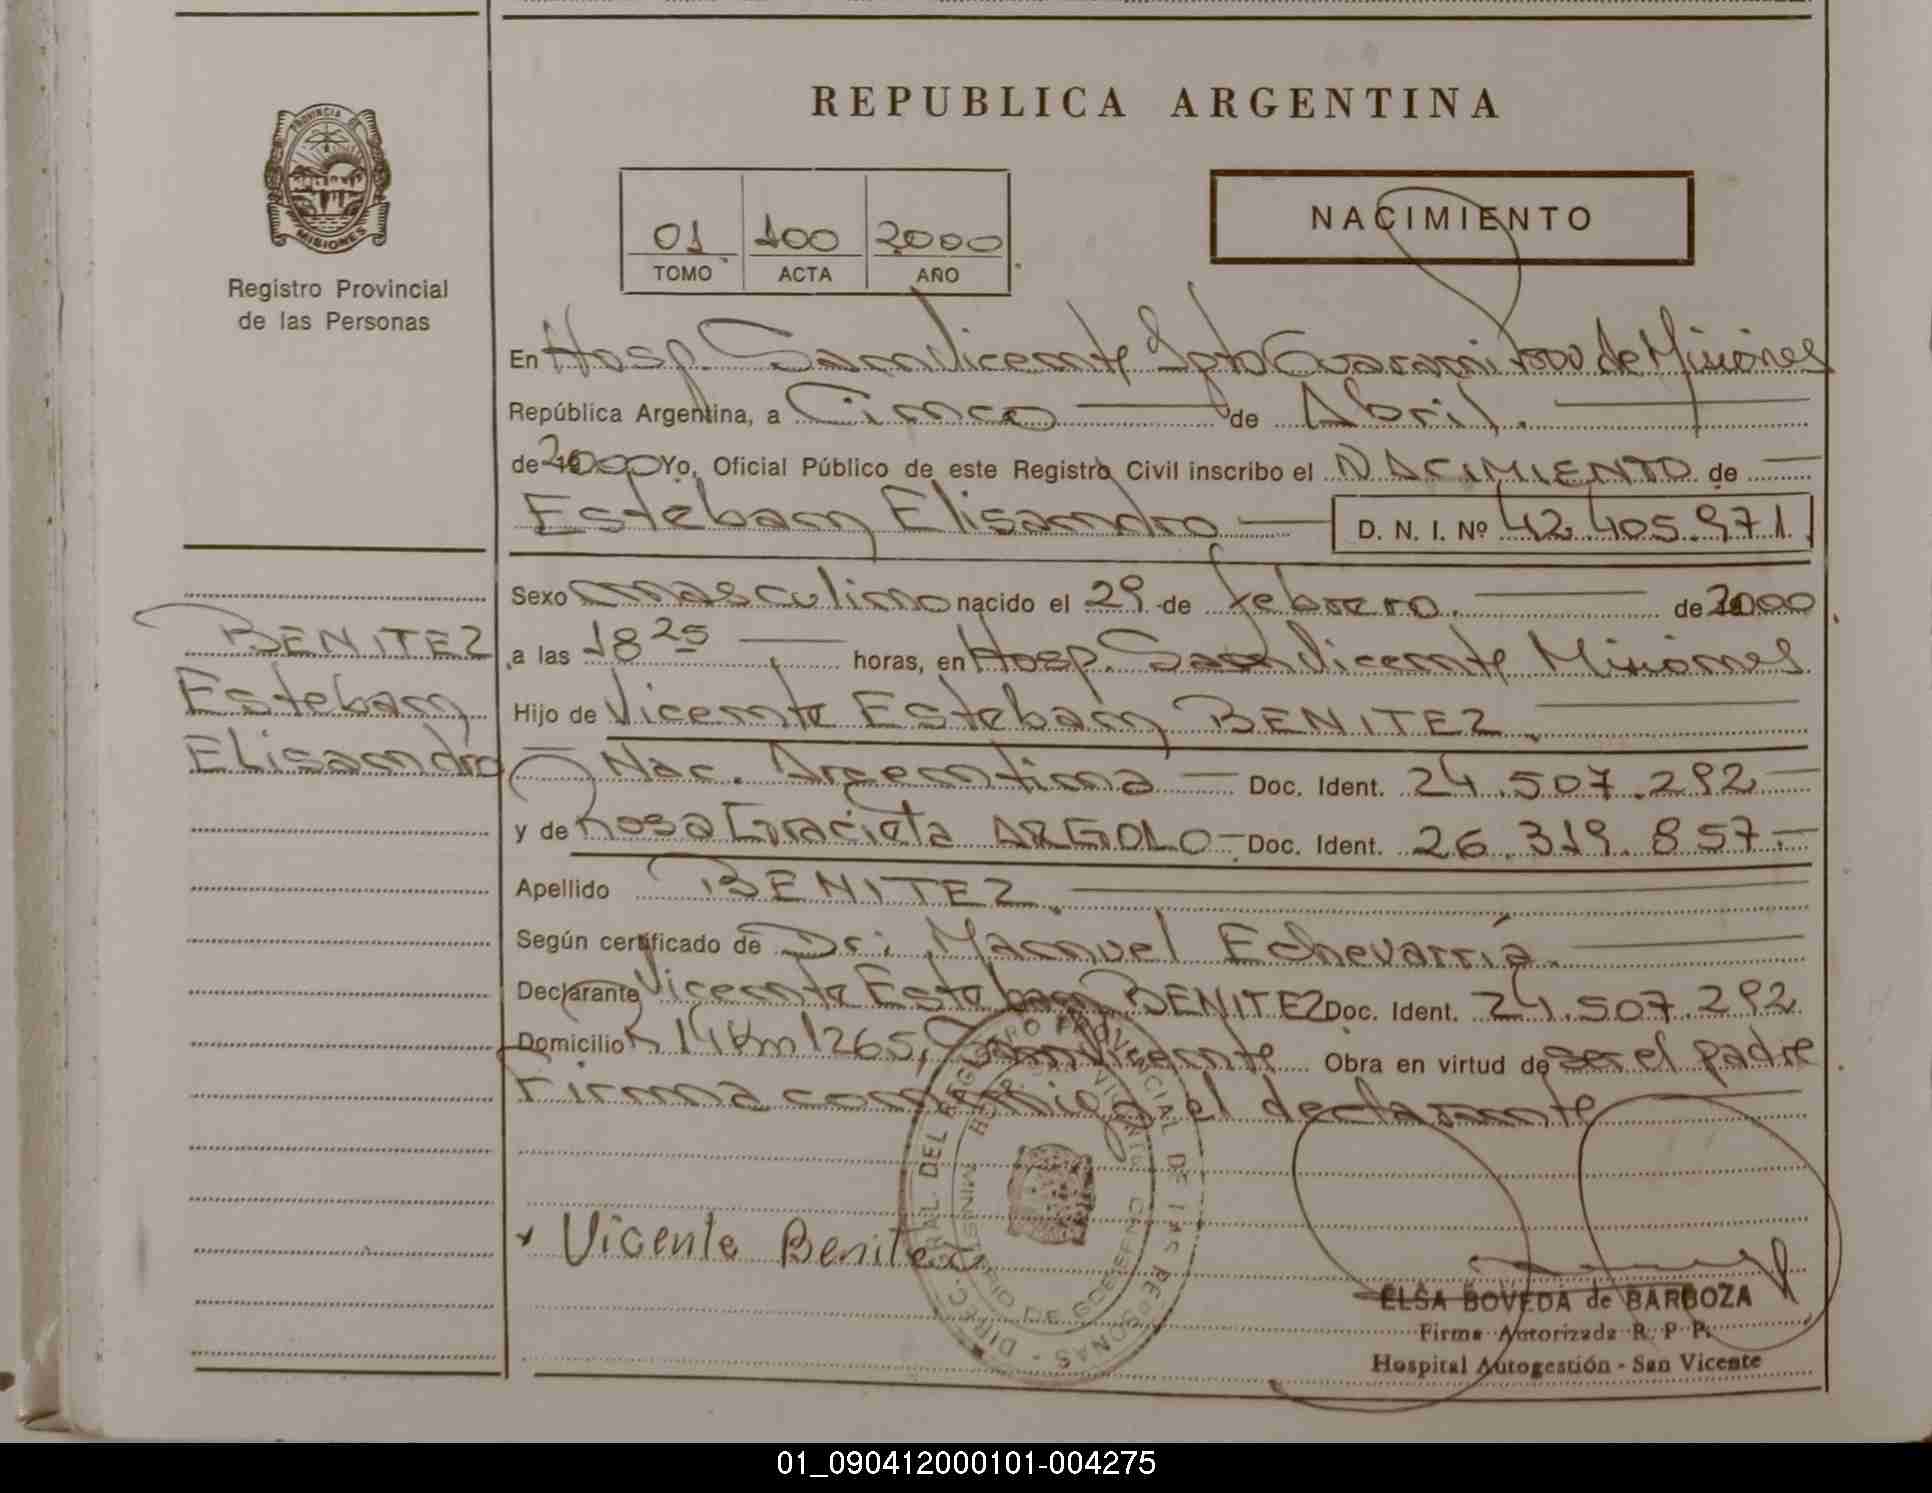 REPUBLICA ARGENTINA
PROVINCIA DE
MISIONES
Registro Provincial
de las Personas
01 100 2000
TOMO ACTA AÑO
NACIMIENTO
En Hosp. San Vicente Dpto Guarani Prov de Misiones
República Argentina, a Cinco de Abril.
de 2000 Yo, Oficial Público de este Registro Civil inscribo el NACIMIENTO de
Esteban Elisandro D. N. I. Nº 42.405.971.
Sexo masculino nacido el 29 de febrero. de 2000
a las 18 25 horas, en Hosp. San Vicente Misiones
Hijo de Vicente Esteban BENITEZ.
Nac. Argentina Doc. Ident. 24.507.292
y de Rosa Graciela ARGOLO Doc. Ident. 26.319.857
Apellido BENITEZ.
Según certificado de Dr: Manuel Echevarría.
Declarante Vicente Esteban BENITEZ Doc. Ident. 24.507.292
Domicilio R 14 Km 1265, San Vicente Obra en virtud de ser el padre
Firma conmigo el declarante
BENITEZ
Esteban
Elisandro
Vicente Benitez
DIREC. GRAL. DEL REGISTRO PROVINCIAL DE LAS PERSONAS
MINISTERIO DE GOBIERNO
ELSA BOVEDA de BARBOZA
Firma Autorizada R. P. P.
Hospital Autogestión - San Vicente
01_090412000101-004275